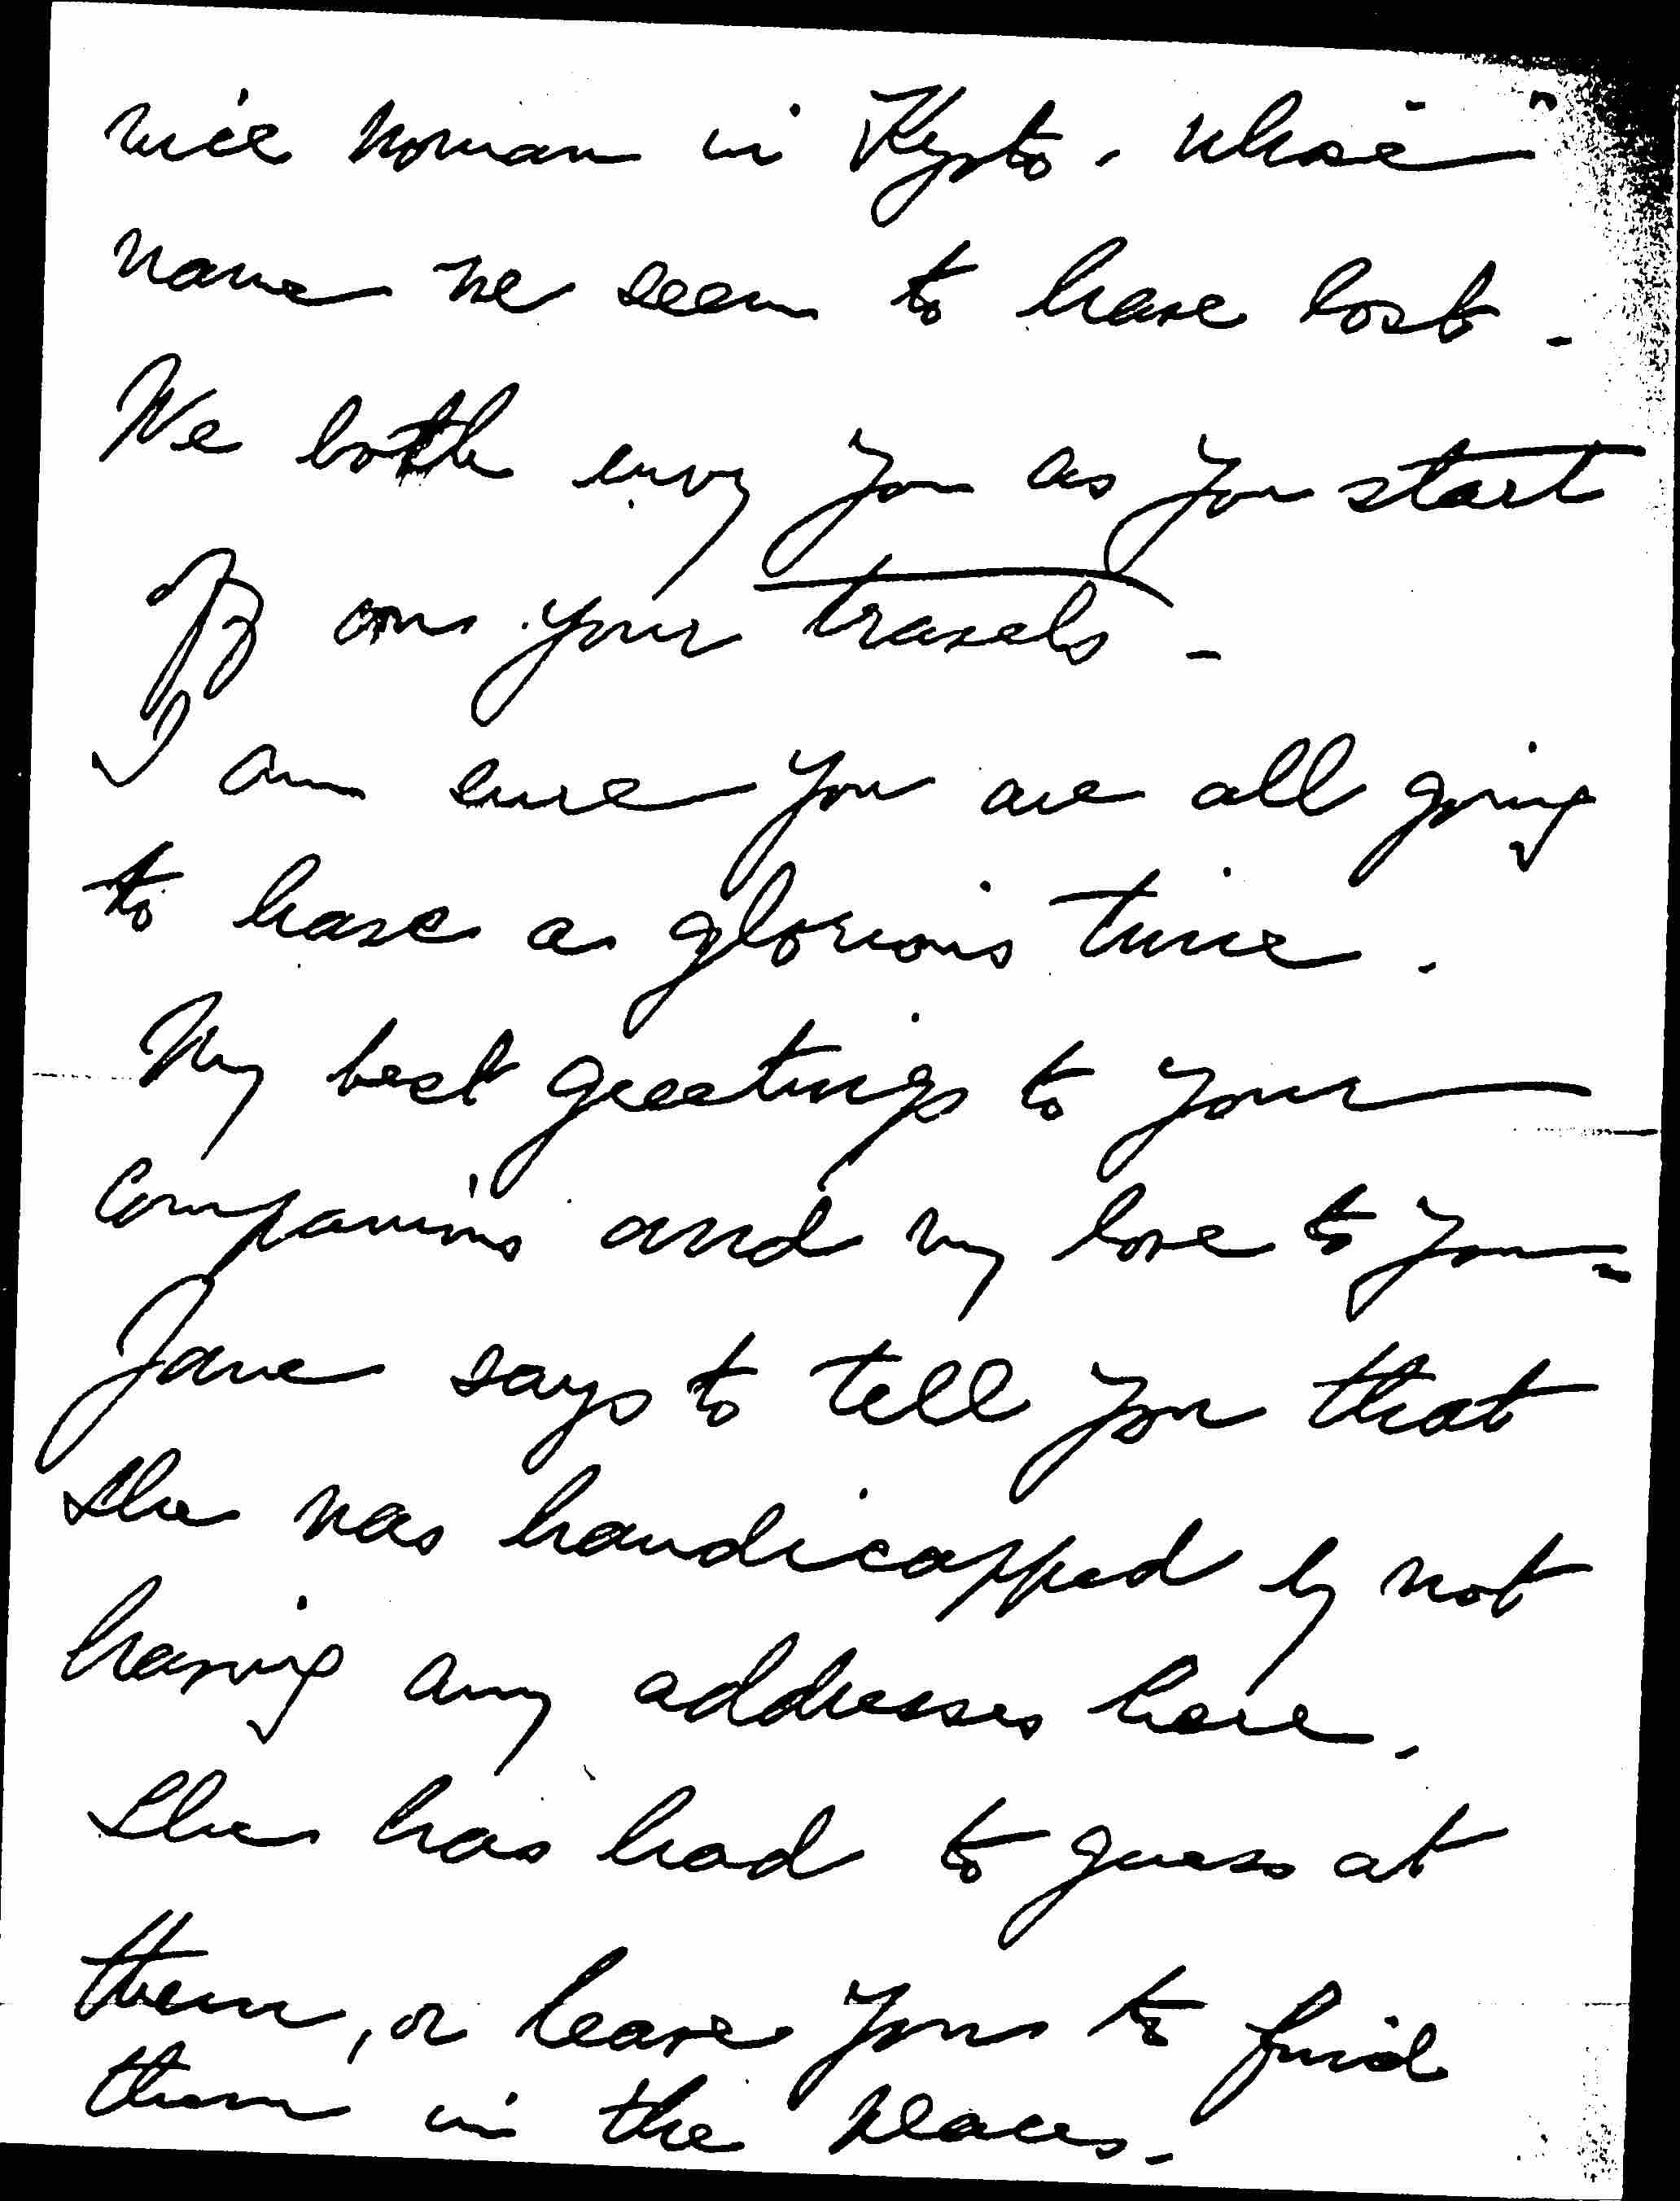 nice woman in Kyoto, whose
name we seem to have lost -
We both envy you as you start
off on your travels -
I am sure you are all going
to have a glorious time.
My best greetings to your
companions and my love to you -
Jane says to tell you that
she was handicapped by not
having any addresses here.
She has had to guess at
them, or leave you to find
them in the places.